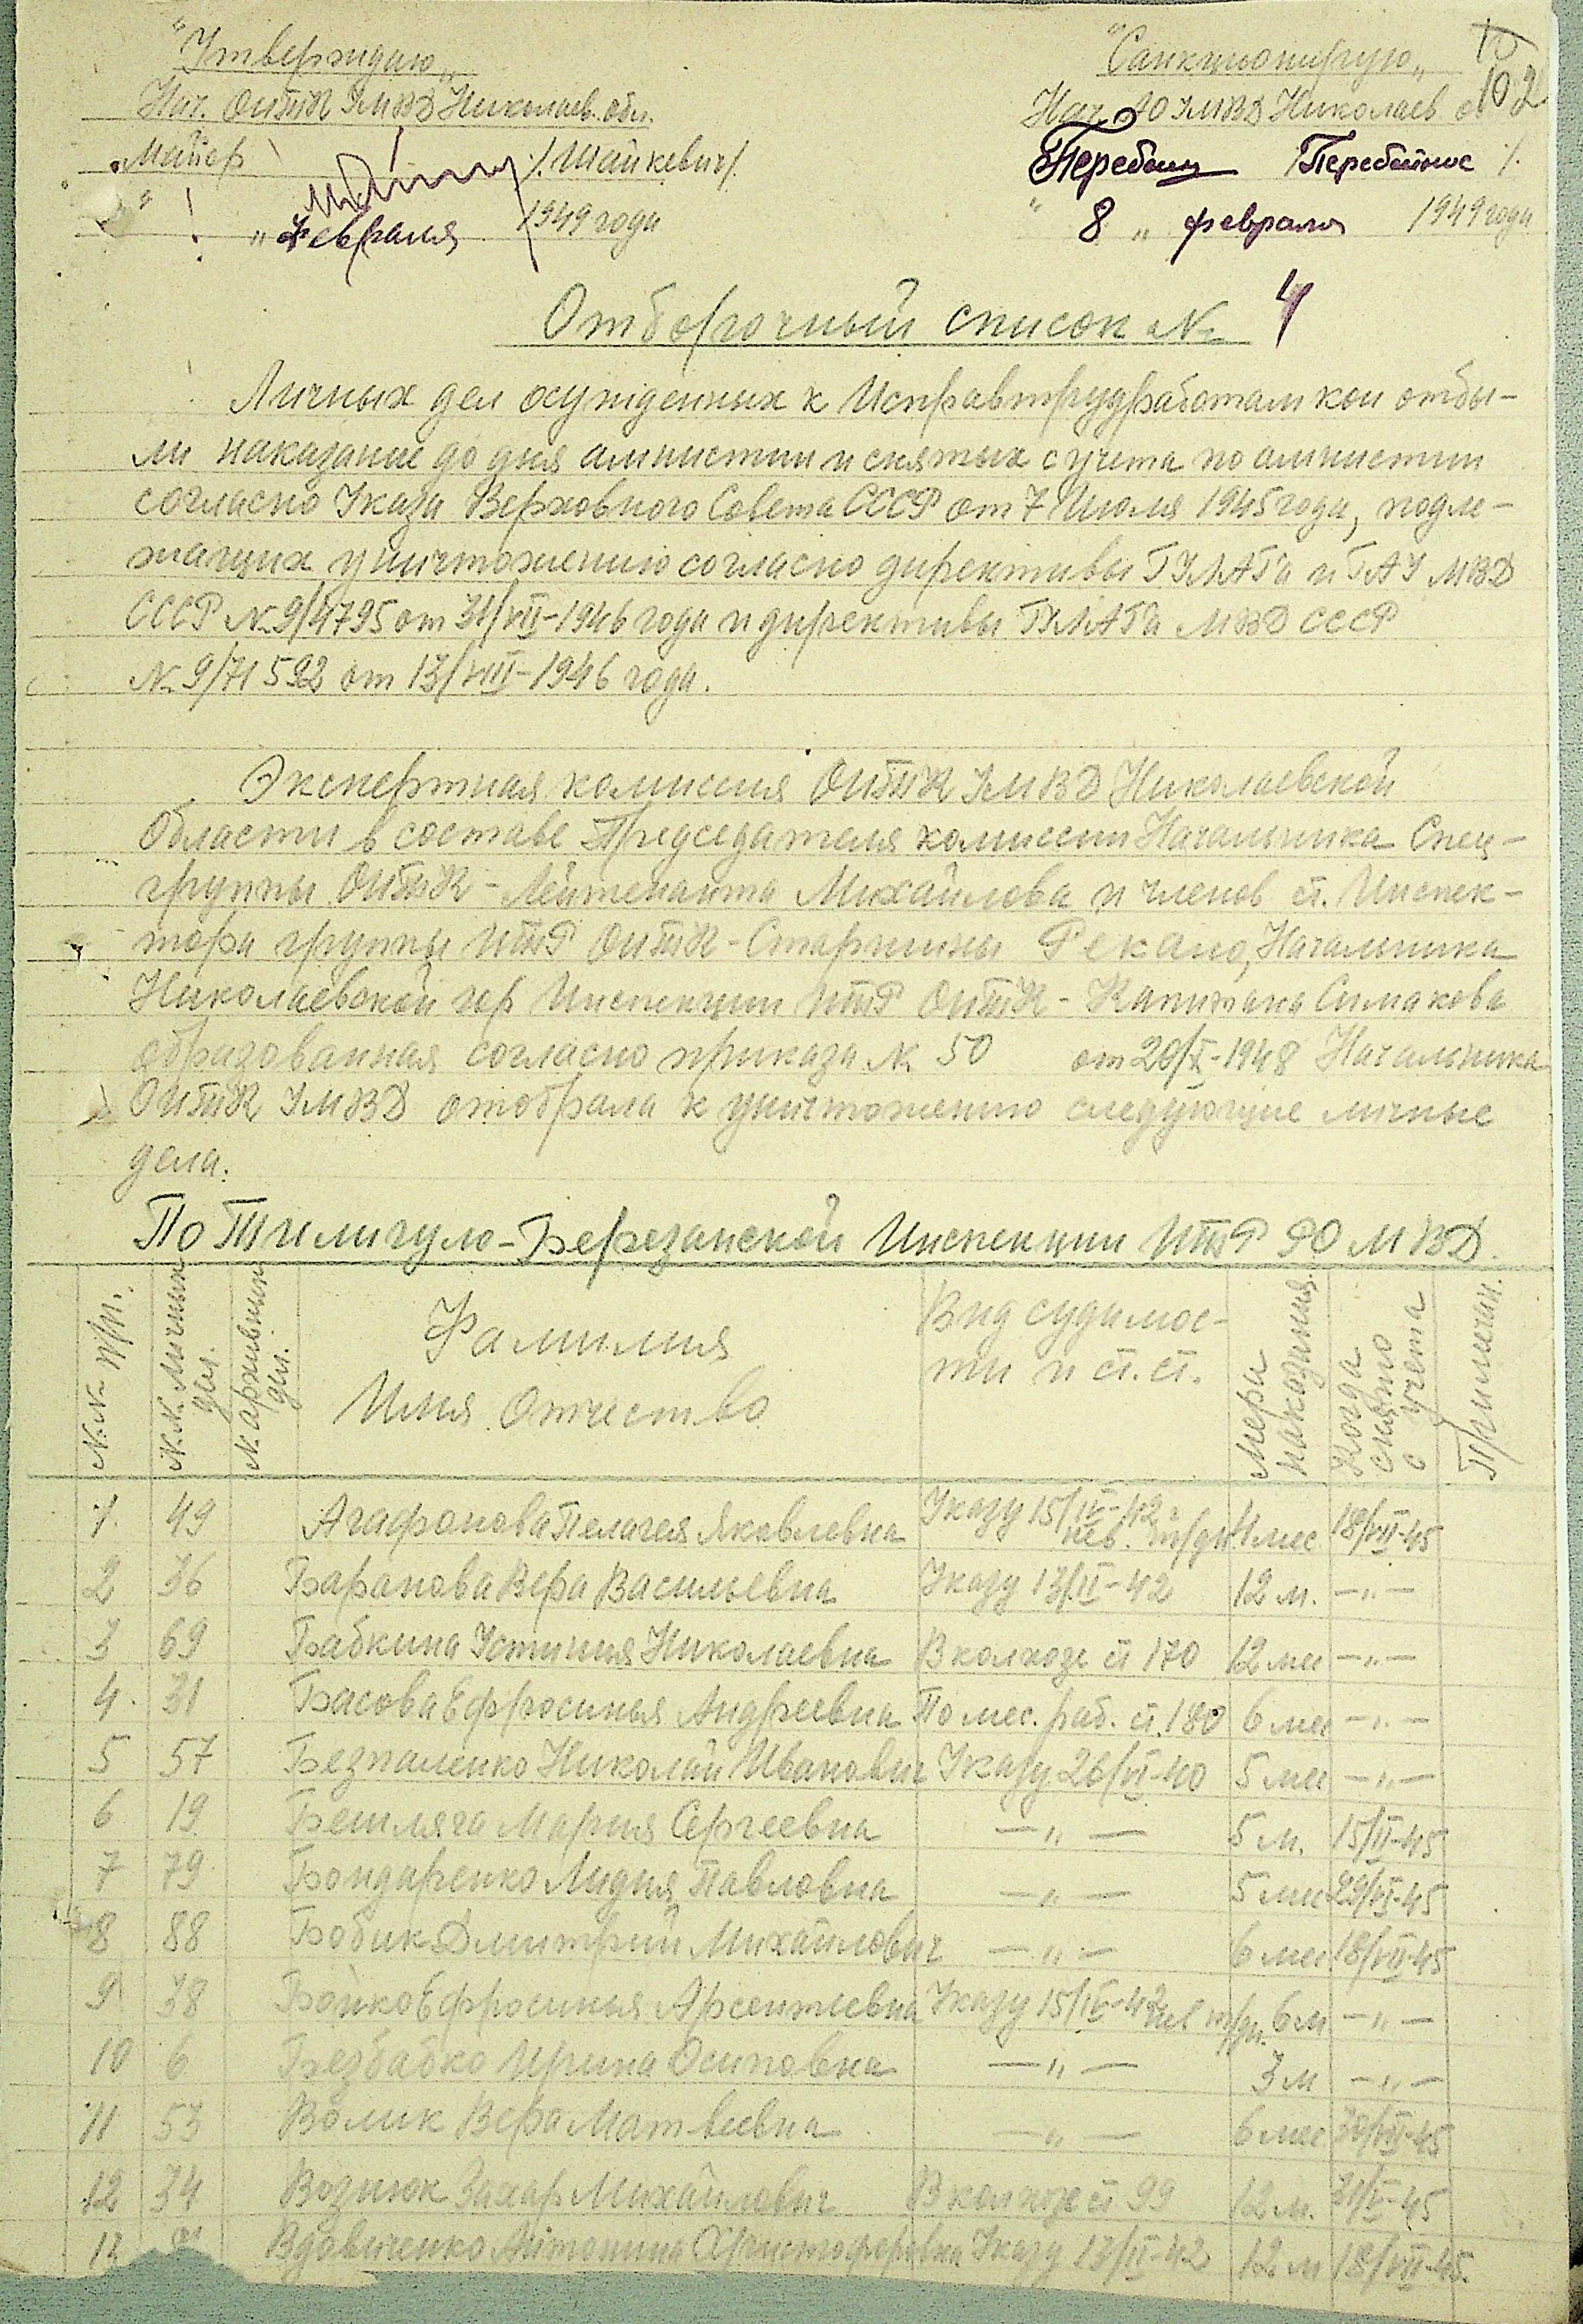 "Утверждаю"
Нач. ОИТК УМВД Николаев. обл.
Майор /Шайкевич/.
" " Февраля 1949 года
"Санкционирую"
102
Нач. АО УМВД Николаев
/Перебейнос/.
" 8 " февраля 1949 года
Отборочный список № 4
Личных дел осужденных к Исправтрудработам кои отбы-
ли наказание до дня амнистии и снятых с учета по амнистии
согласно Указа Верховного Совета СССР от 7 Июля 1945 года, подле-
жащих уничтожению согласно директивы ГУЛАГа и ГАУ МВД
СССР № 9/4795 от 31/VII-1946 года и директивы ГУЛАГа МВД СССР
№ 9/71592 от 13/VIII-1946 года.
Экспертная комиссия ОИТК УМВД Николаевской
Области в составе Председателя комиссии Начальника Спец-
группы ОИТК - Лейтенанта Михайлова и членов ст. Инспек-
тора группы ИТР ОИТК - Старшины Рекало, Начальника
Николаевской гор Инспекции ИТР ОИТК - Капитана Симакова
образованная согласно приказа № 50 от 20/X-1948 Начальника
ОИТК УМВД отобрала к уничтожению следующие личные
дела.
По Тилигуло-Березанской Инспекции ИТР РО МВД.
№№ п/п. №№ Личных дел. № архивных дел. Фамилия Имя Отчество Вид судимос-ти и ст. ст. Мера наказания. Когда снято с учета Примечан.
1. 49 Агафонова Пелагея Яковлевна Указу 15/IV-42 нев. тр/дн 4 мес 18/VII-45
2 36 Баранова Вера Васильевна Указу 13/II-42 12 м. -"-
3 69 Бабкина Устиния Николаевна В колхозе ст 170 12 мес -"-
4. 31 Басова Ефросинья Андреевна По мес. раб. ст. 180 6 мес -"-
5 57 Безпаленко Николай Иванович Указу 26/VI-40 5 мес -"-
6 19 Бешляга Мария Сергеевна -"- 5 м. 15/II-45
7 79 Бондаренко Лидия Павловна -"- 5 мес 29/VI-45
8 88 Бобик Дмитрий Михайлович -"- 6 мес 18/VII-45
9 38 Бойко Ефросинья Арсентьевна Указу 15/IV-42 нев тр/дн. 6 м -"-
10 6 Безбабко Ирина Осиповна -"- 3 м -"-
11 53 Волик Вера Матвеевна -"- 6 мес 30/VII-45
12 34 Вознюк Захар Михайлович В колхозе ст 99 12 м. 31/V-45
13 Вдовиченко Антонина Христофоровна Указу 13/II-42 12 м 18/VII-45.